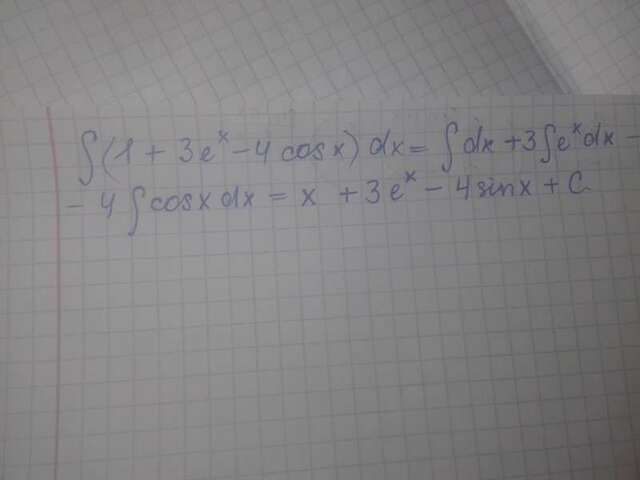 ∫(1 + 3eˣ - 4 cosx) dx = ∫dx + 3∫eˣdx -
- 4 ∫cosx dx = x + 3eˣ - 4 sinx + C